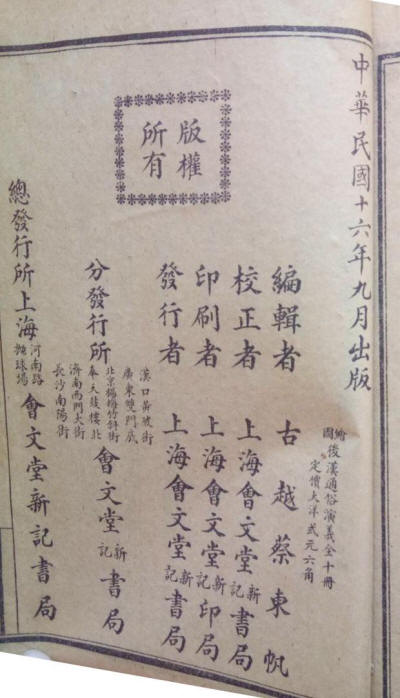 中華民國十六年九月出版
版權
所有
繪圖後漢通俗演義全十冊
定價大洋貳元六角
編輯者 古越蔡東帆
校正者 上海會文堂新記書局
印刷者 上海會文堂新記印局
發行者 上海會文堂新記書局
分發行所
漢口黃陂街
廣東雙門底
北京楊梅竹斜街
奉天鼓樓北
濟南西門大街
長沙南陽街
會文堂新記書局
總發行所上海河南路拋球場會文堂新記書局